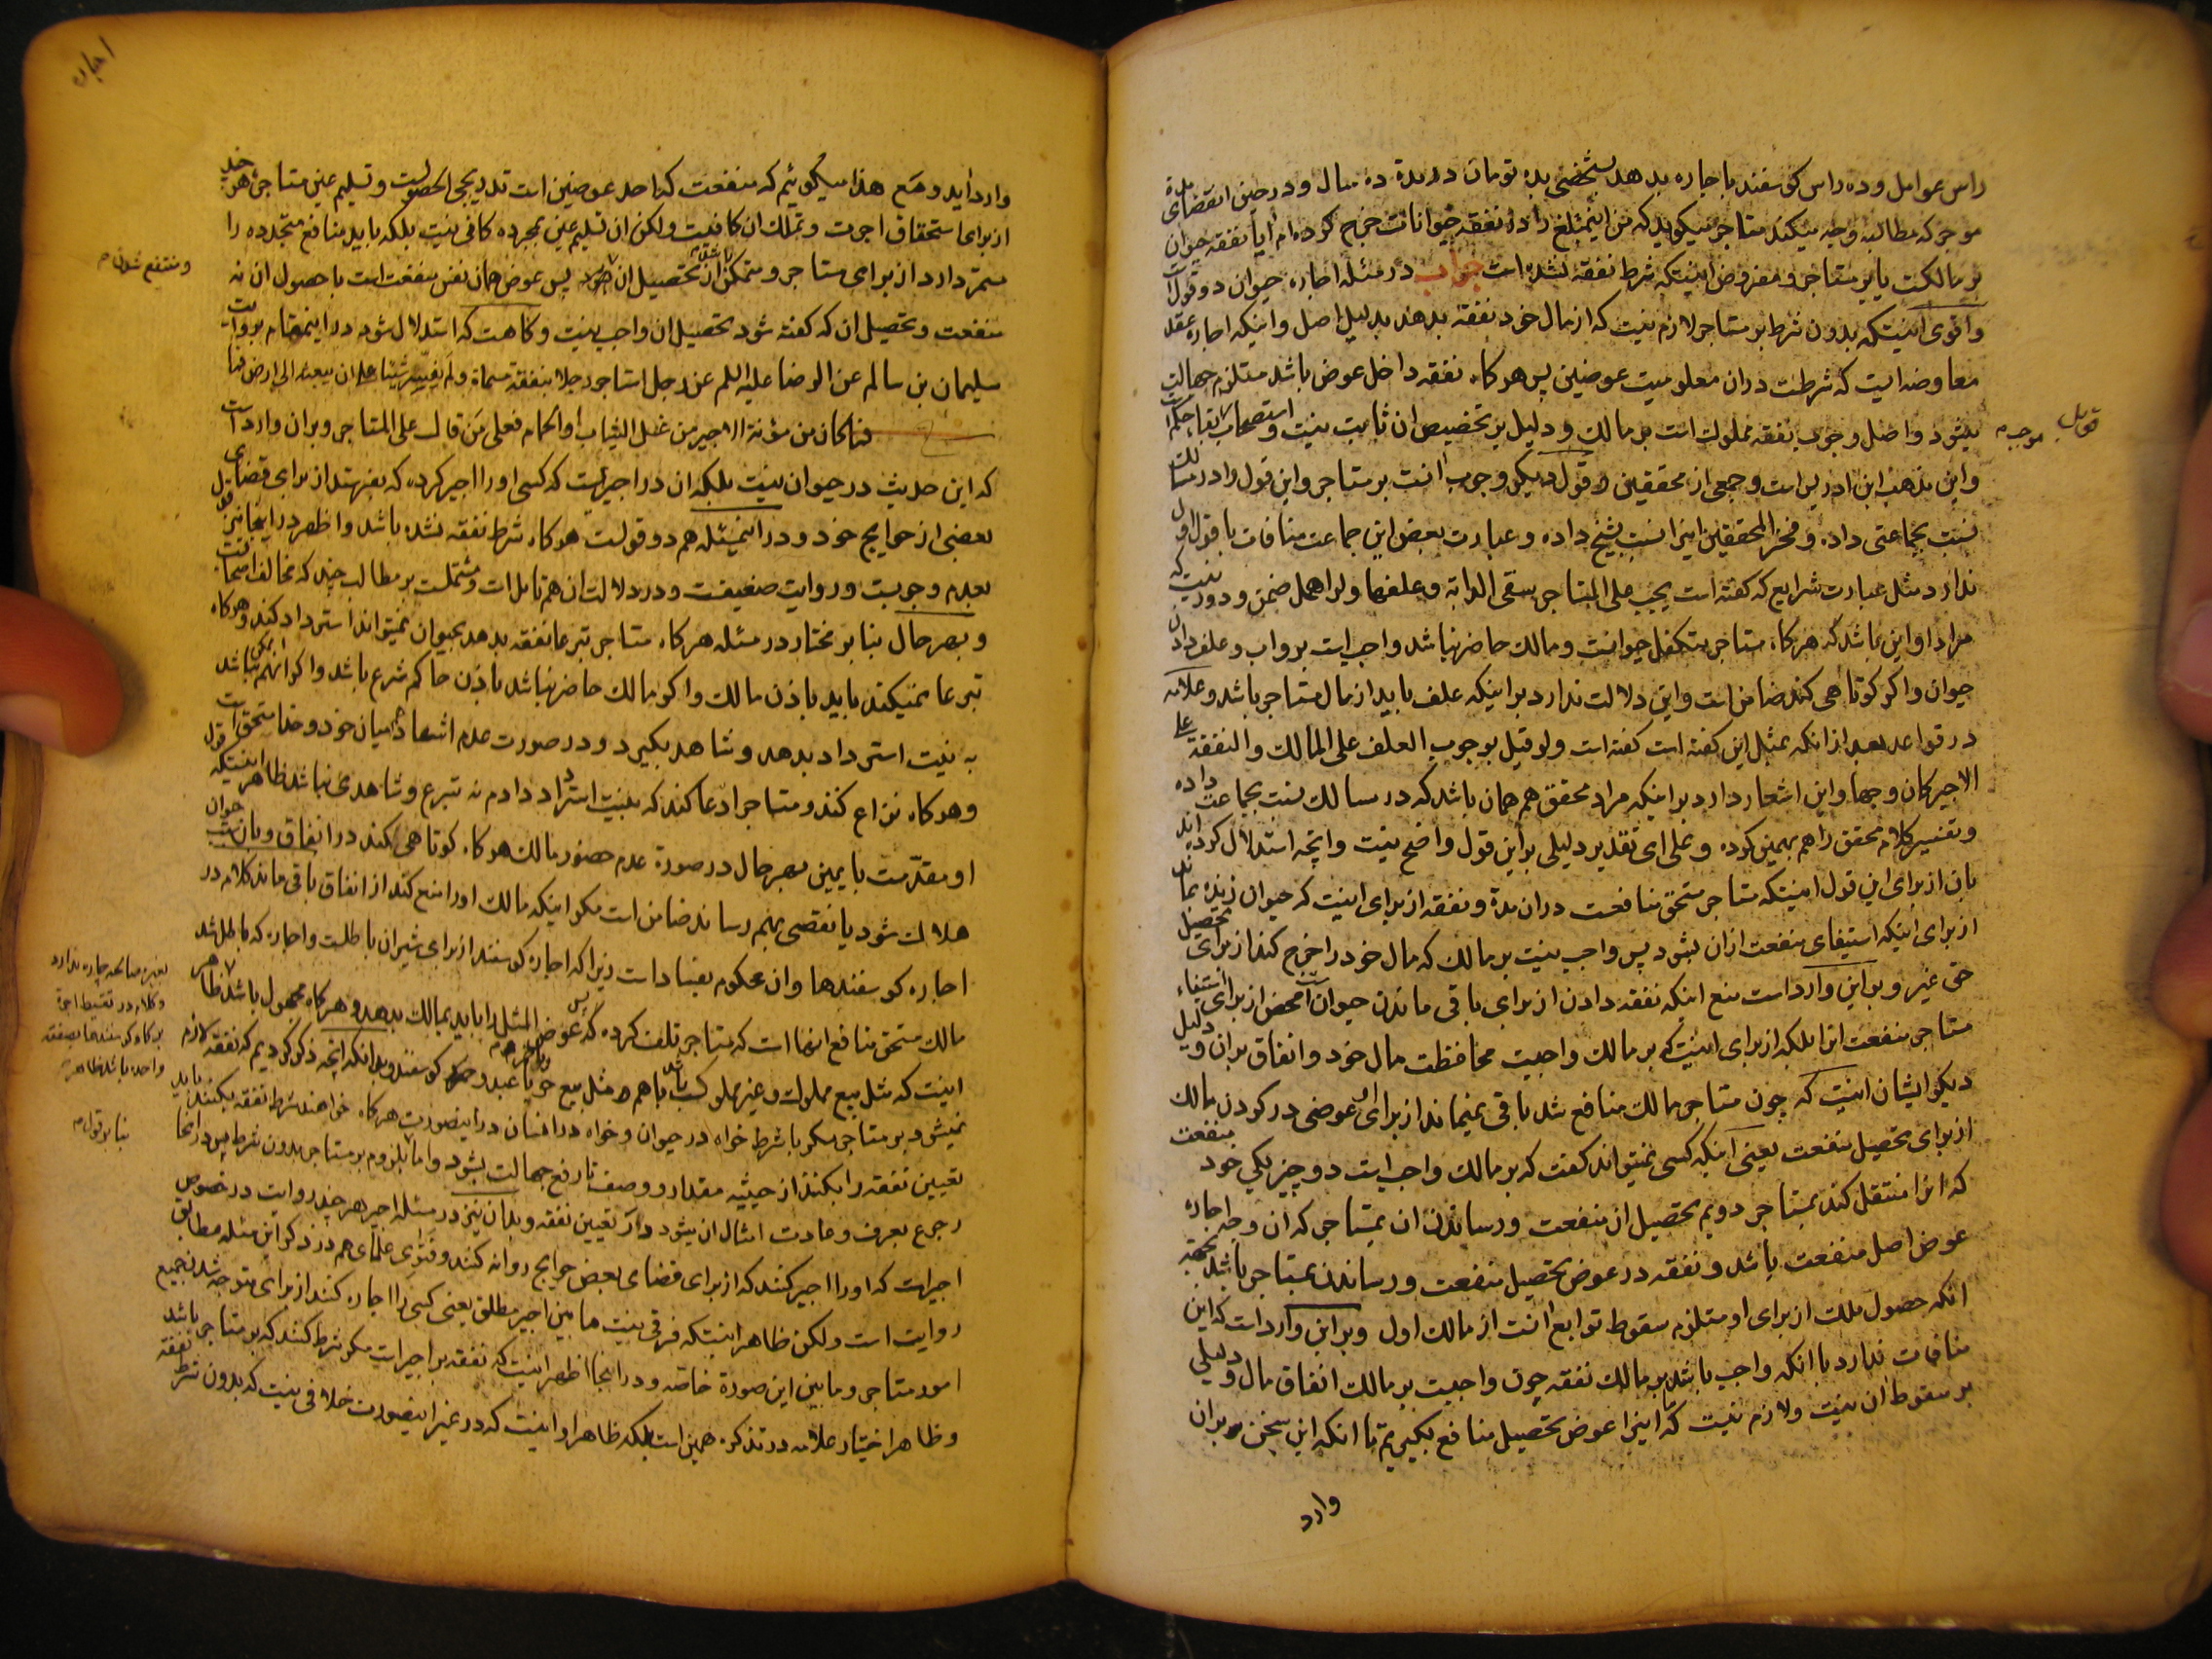 راس عوامل و ده راس کوسفند باجاره بدهد بشخصی بده تومان در مدة ده سال و در حین انقضای مدة
موجر که مطالبه وجه میکند مستاجر میکوید که من اینمبلغ را در نفقه حیوانات خرج کرده‌ام ایا نفقه حیوان
بر مالکست یا بر مستاجر و مفروض اینستکه شرط نفقه نشده است جواب در مسئله اجاره حیوان دو قول است
و اقوی اینستکه بدون شرط بر مستاجر لازم نیست که از مال خود نفقه بدهد بدلیل اصل و اینکه اجاره عقد
معاوضه ایست که شرطست دران معلومیت عوضین پس هرکاه نفقه داخل عوض باشد مستلزم جهالت
میشود و اصل وجوب نفقه مملوک است بر مالک و دلیل بر تخصیص ان ثابت نیست و استصحاب بقاء حکم
موجب
واین مذهب ابن ادریس است و جمعی از محققین و قول دیکر وجوب انست بر مستاجر و این قول را در مسالک
نسبت بجماعتی داده و فخر المحققین انرا نسبت بشیخ داده و عبارت بعض این جماعت منافات با قول اول
ندارد مثل عبارت شرایع که کفته است یجب علی المستاجر سقی الدابة و علفها ولو اهمل ضمن و دور نیست که
مراد او این باشد که هرکاه مستاجر متکفل حیوانست و مالک حاضر نباشد واجب است بر او اب و علف دادن
حیوان و اکر کوتاهی کند ضامن است و این دلالت ندارد بر اینکه علف باید از مال مستاجر باشد و علامه
در قواعد بعد از انکه بمثل این کفته است کفته است ولو قیل بوجوب العلف علی المالک والنفقة علی
الاجیر کان وجها و این اشعار دارد بر اینکه مراد محقق هم همان باشد که در مسالک نسبت بجماعت داده
و تفسیر کلام محقق را هم بهمین کرده و علی ای تقدیر دلیلی بر این قول واضح نیست و انچه استدلال کرده اند
بان از برای این قول اینستکه مستاجر مستحق منافعست دران مدة و نفقه از برای اینست که حیوان زنده بماند
از برای اینکه استیفای منفعت ازان بشود پس واجب نیست بر مالک که مال خود را خرج کند از برای تحصیل
حق غیر و بر این وارد است منع اینکه نفقه دادن از برای باقی ماندن حیوان است محض از برای استیفاء
مستاجر منفعت انرا بلکه از برای اینست که بر مالک واجبست محافظت مال خود و انفاق بران و دلیل
دیکر ایشان اینست که چون مستاجر مالک منافع شد باقی نمیماند از برای او عوضی در کردن مالک
از برای تحصیل منفعت یعنی اینکه کسی نمیتواند کفت که بر مالک واجب است دو چیز یکی خود منفعت
که انرا منتقل کند بمستاجر دویم تحصیل ان منفعت و رساندن ان بمستاجر که ان وجه اجاره
عوض اصل منفعت باشد و نفقه در عوض تحصیل منفعت و رساندن بمستاجر باشد بجهة
انکه حصول ملک از برای او مستلزم سقوط توابع انست از مالک اول و بر این وارد است که این
منافات ندارد با انکه واجب باشد بر مالک نفقه چون واجبست بر مالک انفاق مال و دلیلی
بر سقوط ان نیست و لازم نیست که انرا عوض تحصیل منافع بکیریم تا انکه این سخن بر ان
وارد
اجاره
وارد اید و مع هذا میکوییم که منفعت که احد عوضین است تدریجی الحصولست و تسلیم عین مستاجره هر چند
از برای استحقاق اجرت و تملک ان کافیست ولکن ان تسلیم عین بمجرده کافی نیست بلکه باید منافع متجدده را
مستمر دارد از برای مستاجر و متمکن از تحصیل ان پس عوض همان نفس منفعت است با حصول ان نه
و منتفع شدن
منفعت و تحصیل ان که کفته شود تحصیل ان واجب نیست و کاهست که استدلال شود در اینمقام بروایت
سلیمان بن سالم عن الرضا علیه السلم عن رجل استاجر رجلا بنفقة مسماة و لم یفسر شیئا علی ان یبعثه الی ارض فما
کان من مؤنة الاجیر من غسل الثیاب او الحمام فعلی من قال علی المستاجر و بران وارد است
که این حدیث در حیوان نیست بلکه ان در اجیریست که کسی او را اجیر کرده که بفرستد از برای قضای
بعضی از حوایج خود و در اینمسئله هم دو قولست هرکاه شرط نفقه نشده باشد و اظهر در اینجا نیز قول
بعدم وجوبست و روایت ضعیفست و در دلالت ان هم تاملات و مشتملست بر مطالب چند که مخالف اصحابست
و بهر حال بنا بر مختار در مسئله هرکاه مستاجر تبرعا نفقه بدهد بحیوان نمیتواند استرداد کند و هرکاه
تبرعا نمیکند باید باذن مالک و اکر مالک حاضر نباشد باذن حاکم شرع باشد و اکر انهم ممکن نباشد
به نیت استرداد بدهد و شاهد بکیرد و در صورت عدم اشهاد میان خود و خدا مستحق است
و هرکاه نزاع کنند و مستاجر ادعا کند که بنیت استرداد دادم نه تبرع و شاهدی نباشد ظاهر اینستکه قول
او مقدمست با یمین بهر حال در صورة عدم حضور مالک هرکاه کوتاهی کند در انفاق و بان سبب حیوان
هلاک شود یا نقصی بهم رساند ضامن است مکر اینکه مالک او را منع کند از انفاق باقی ماند کلام در
اجاره کوسفندها و ان محکوم بفساد است زیرا که اجاره کوسفند از برای شیر ان باطلست و اجاره که باطل شد
مالک مستحق منافع انها است که مستاجر تلف کرده که عوض المثل را باید بمالک بدهد و هرکاه مجهول باشد ظاهر
اینست که مثل بیع مملوک و غیر مملوک باشد با هم و مثل بیع حر با عبد و کوسفند و بدانکه انچه ذکر کردیم که نفقه لازم
نمیشود بر مستاجر مکر با شرط خواه در حیوان و خواه در انسان در اینصورت هرکاه خواهند شرط نفقه بکنند باید
تعیین نفقه را بکنند از حیثیه مقدار و وصف تا رفع جهالت بشود و اما بلزوم بر مستاجر بدون شرط پس در انجا
بنا بر قول
رجوع بعرف و عادت امثال ان میشود در تعیین نفقه و بدان نیز در مسئله اجیر هر چند روایت در خصوص
اجیریست که او را اجیر کنند که از برای قضای بعض حوایج روانه کنند و فتوای علمای هم در ذکر این مسئله مطابق
روایت است ولکن ظاهر اینستکه فرقی نیست ما بین اجیر مطلق یعنی کسی را اجاره کنند از برای متوجه شدن جمیع
امور مستاجر و ما بین این صورة خاصه و در اینجا اظهر اینست که نفقه بر اجیر است مکر شرط کنند که بر مستاجر باشد
و ظاهر اختیار علامه در تذکره همین است بلکه ظاهر او اینست که در غیر اینصورت خلافی نیست که بدون شرط نفقه